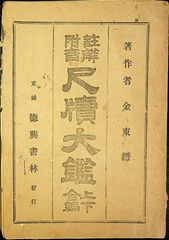 著作者 金東縉
註解附音 尺牘大鑑
京城 德興書林 發行